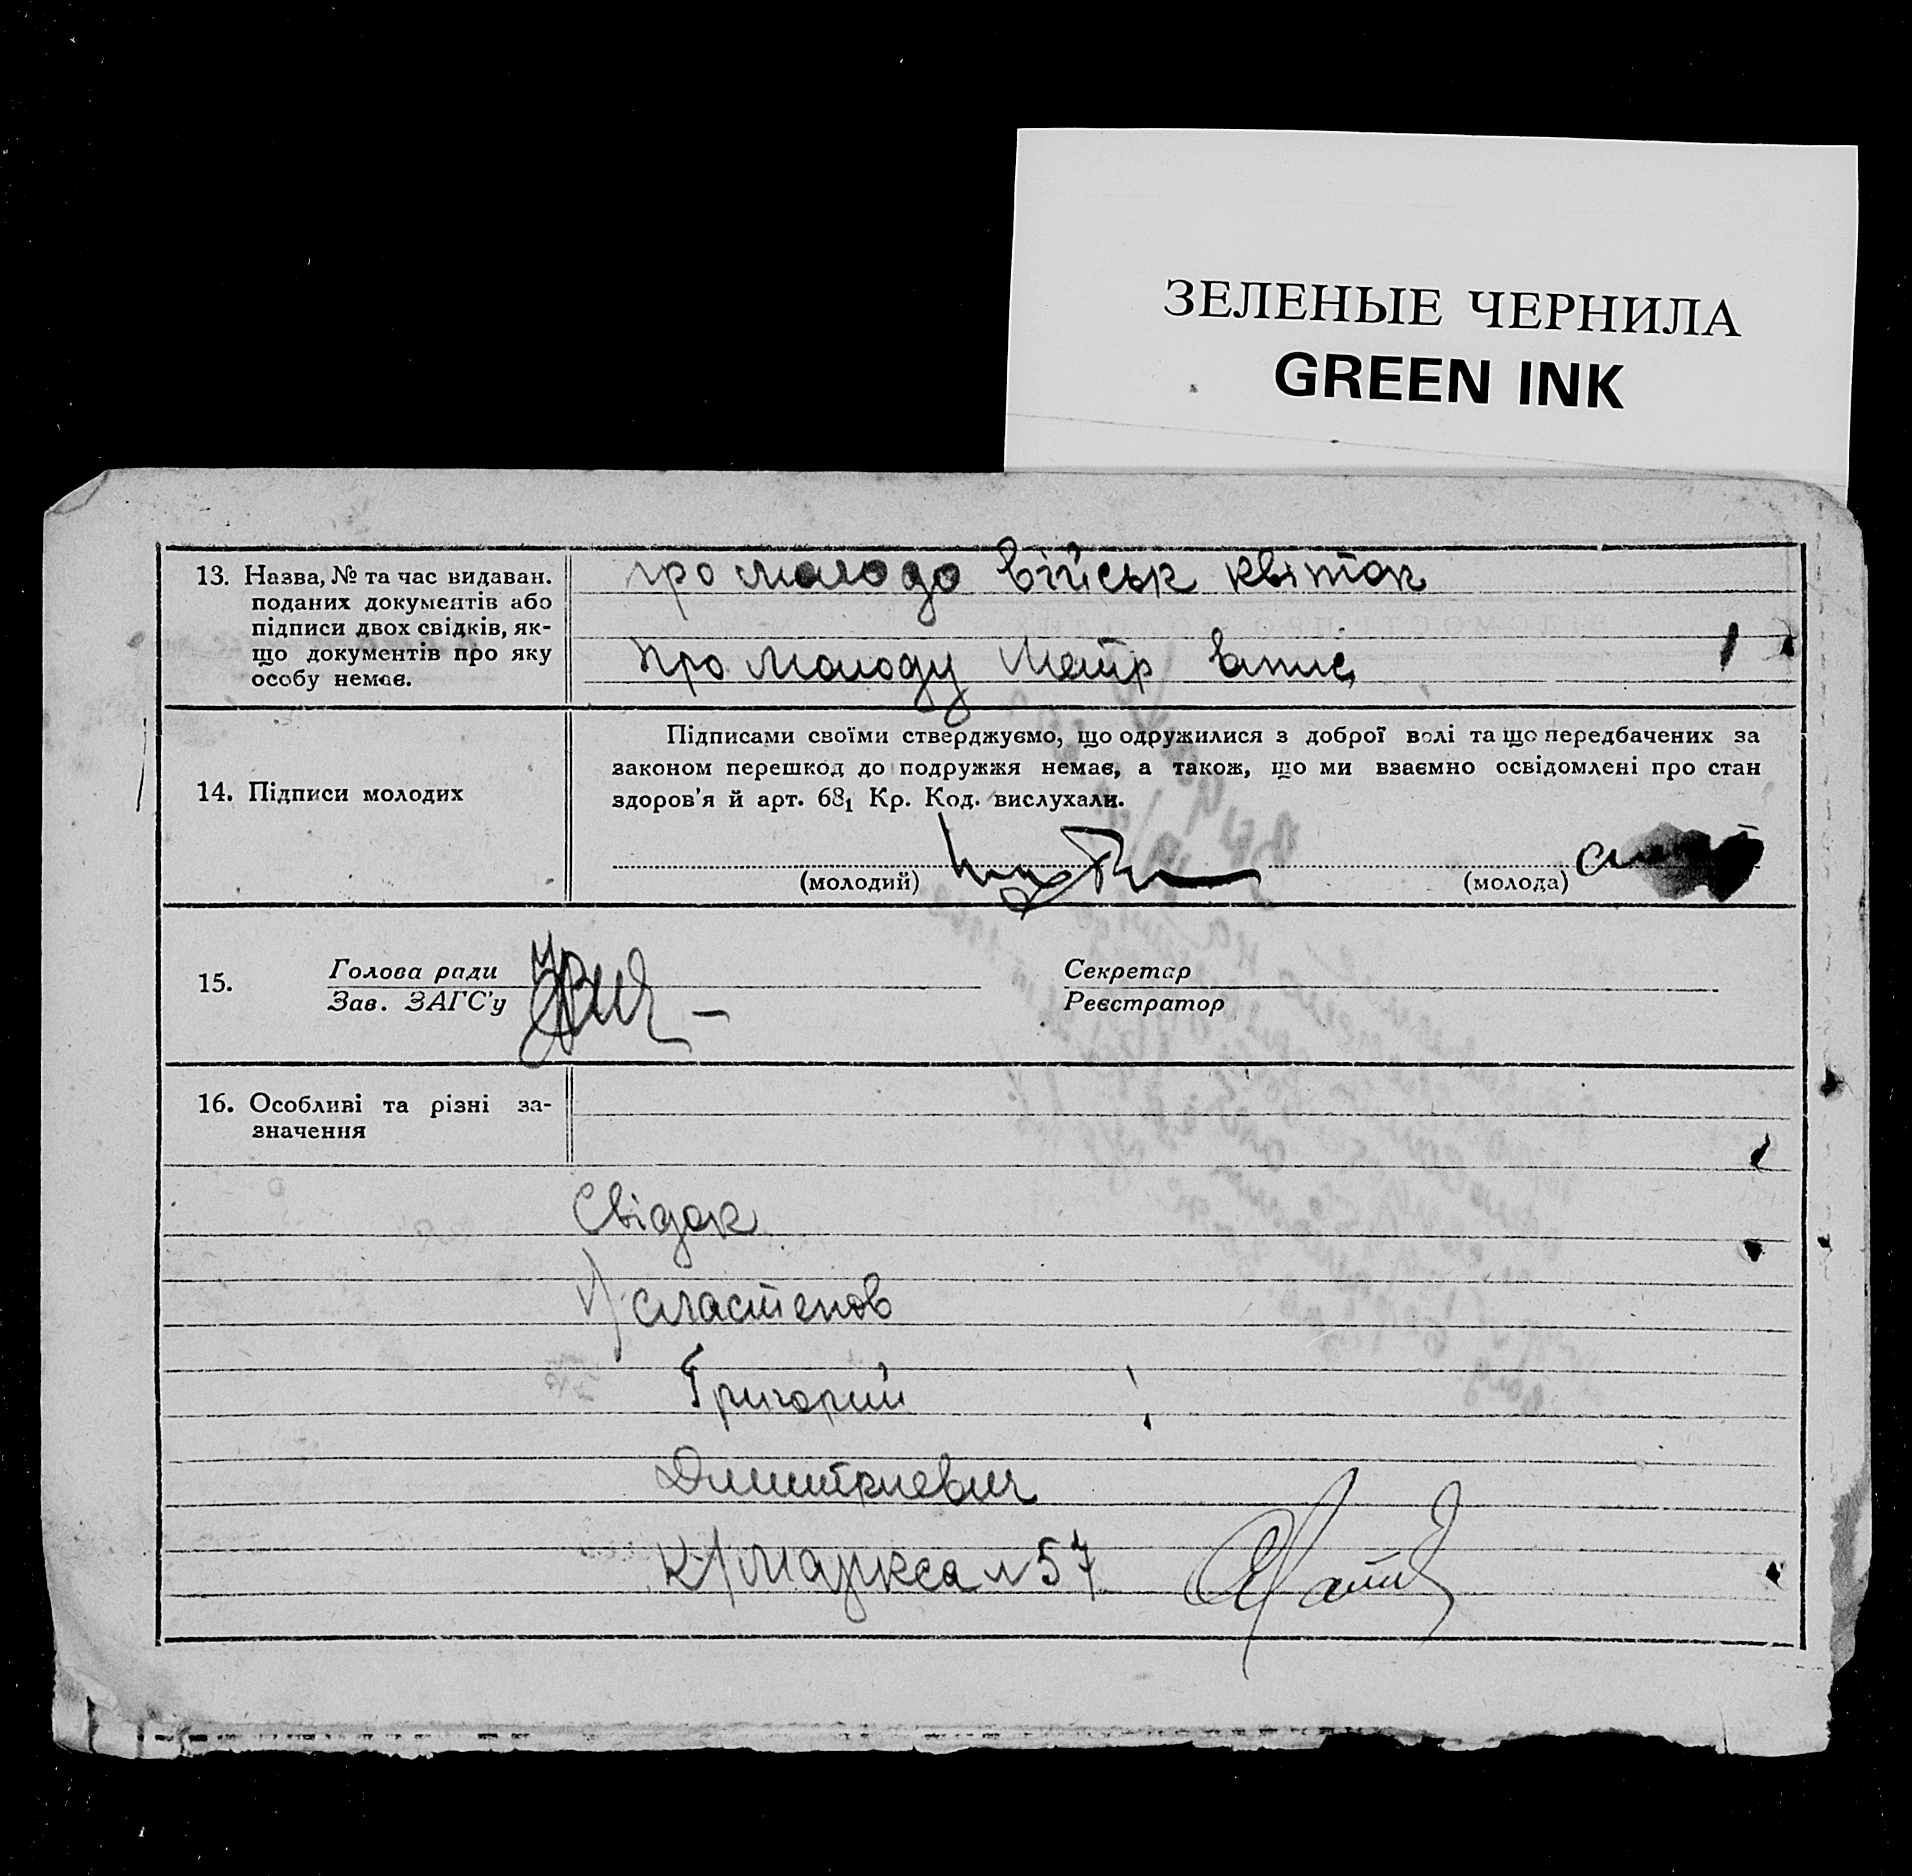 ЗЕЛЕНЫЕ ЧЕРНИЛА
GREEN INK
13. Назва, № та час видаван.
поданих документів або
підписи двох свідків, як-
що документів про яку
особу немає.
про молодо військ квіток
про молоду Метр впис
14. Підписи молодих
Підписами своїми стверджуємо, що одружилися з доброї волі та що передбачених за
законом перешкод до подружжя немає, а також, що ми взаємно освідомлені про стан
здоров'я й арт. 68₁ Кр. Код. вислухали.
(молодий) (молода)
15. Голова ради
Зав. ЗАГС'у
Секретар
Реєстратор
16. Особливі та різні за-
значення
Свідок
Сластенов
Григорий
Димитриевич
К/Маркса № 57